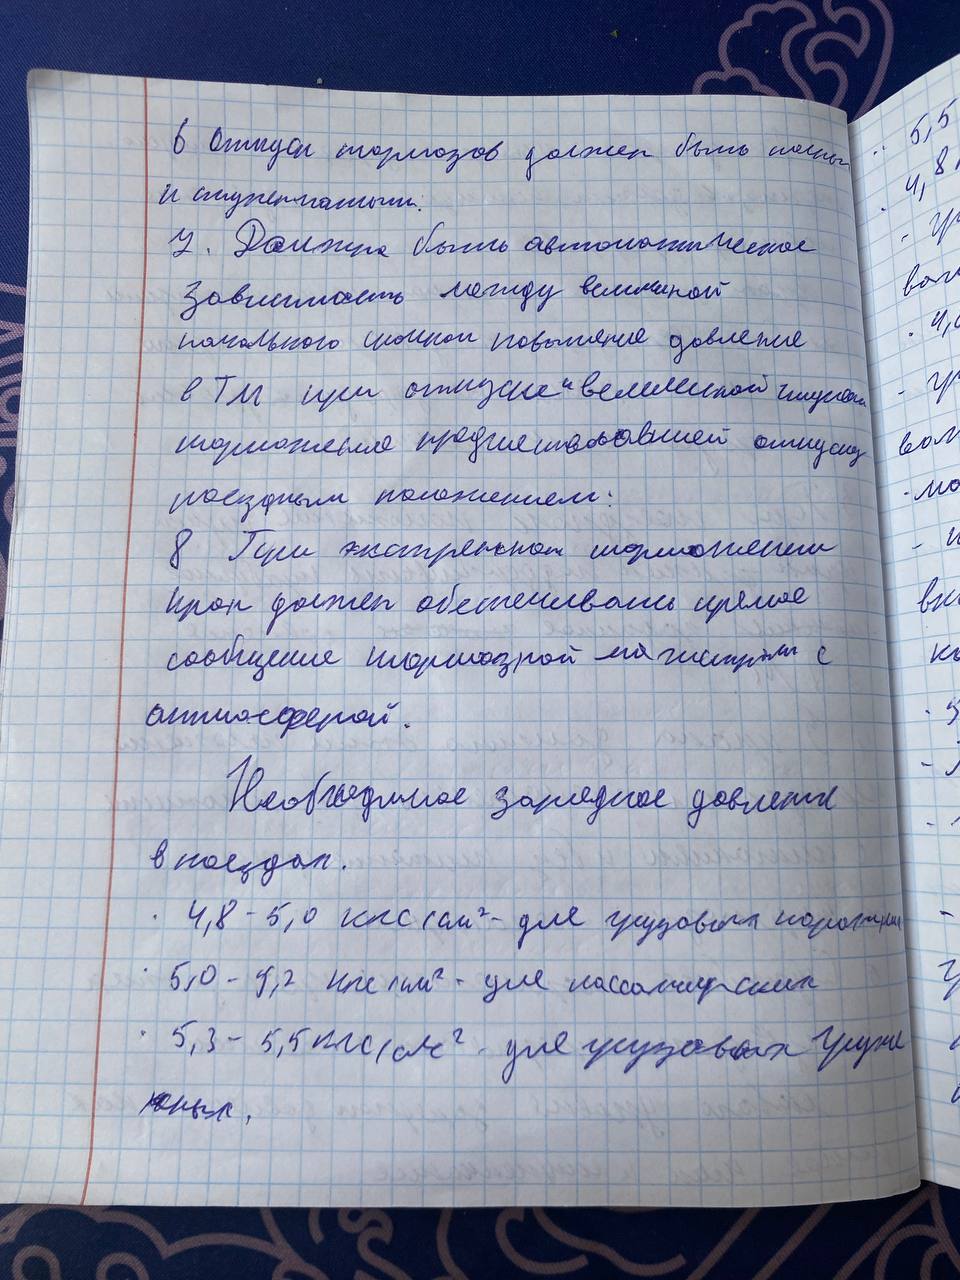 6 Отпуск тормозов должен быть полным
и ступенчатым.
7. Должна быть автоматическое
зависимость между величиной
начального повышение давление
в ТМ при отпуске и величиной ступени
торможения предшествовавшей отпуску
поездным положением.
8 При экстренном торможении
кран должен обеспечивать прямое
сообщение тормозной магистрали с
атмосферой.
Необходимое зарядное давление
в поездах.
· 4,8 - 5,0 кгс/см² - для грузовых порожних
· 5,0 - 5,2 кгс/см² - для пассажирских
· 5,3 - 5,5 кгс/см² - для грузовых груже
ных.
5,5
4,8